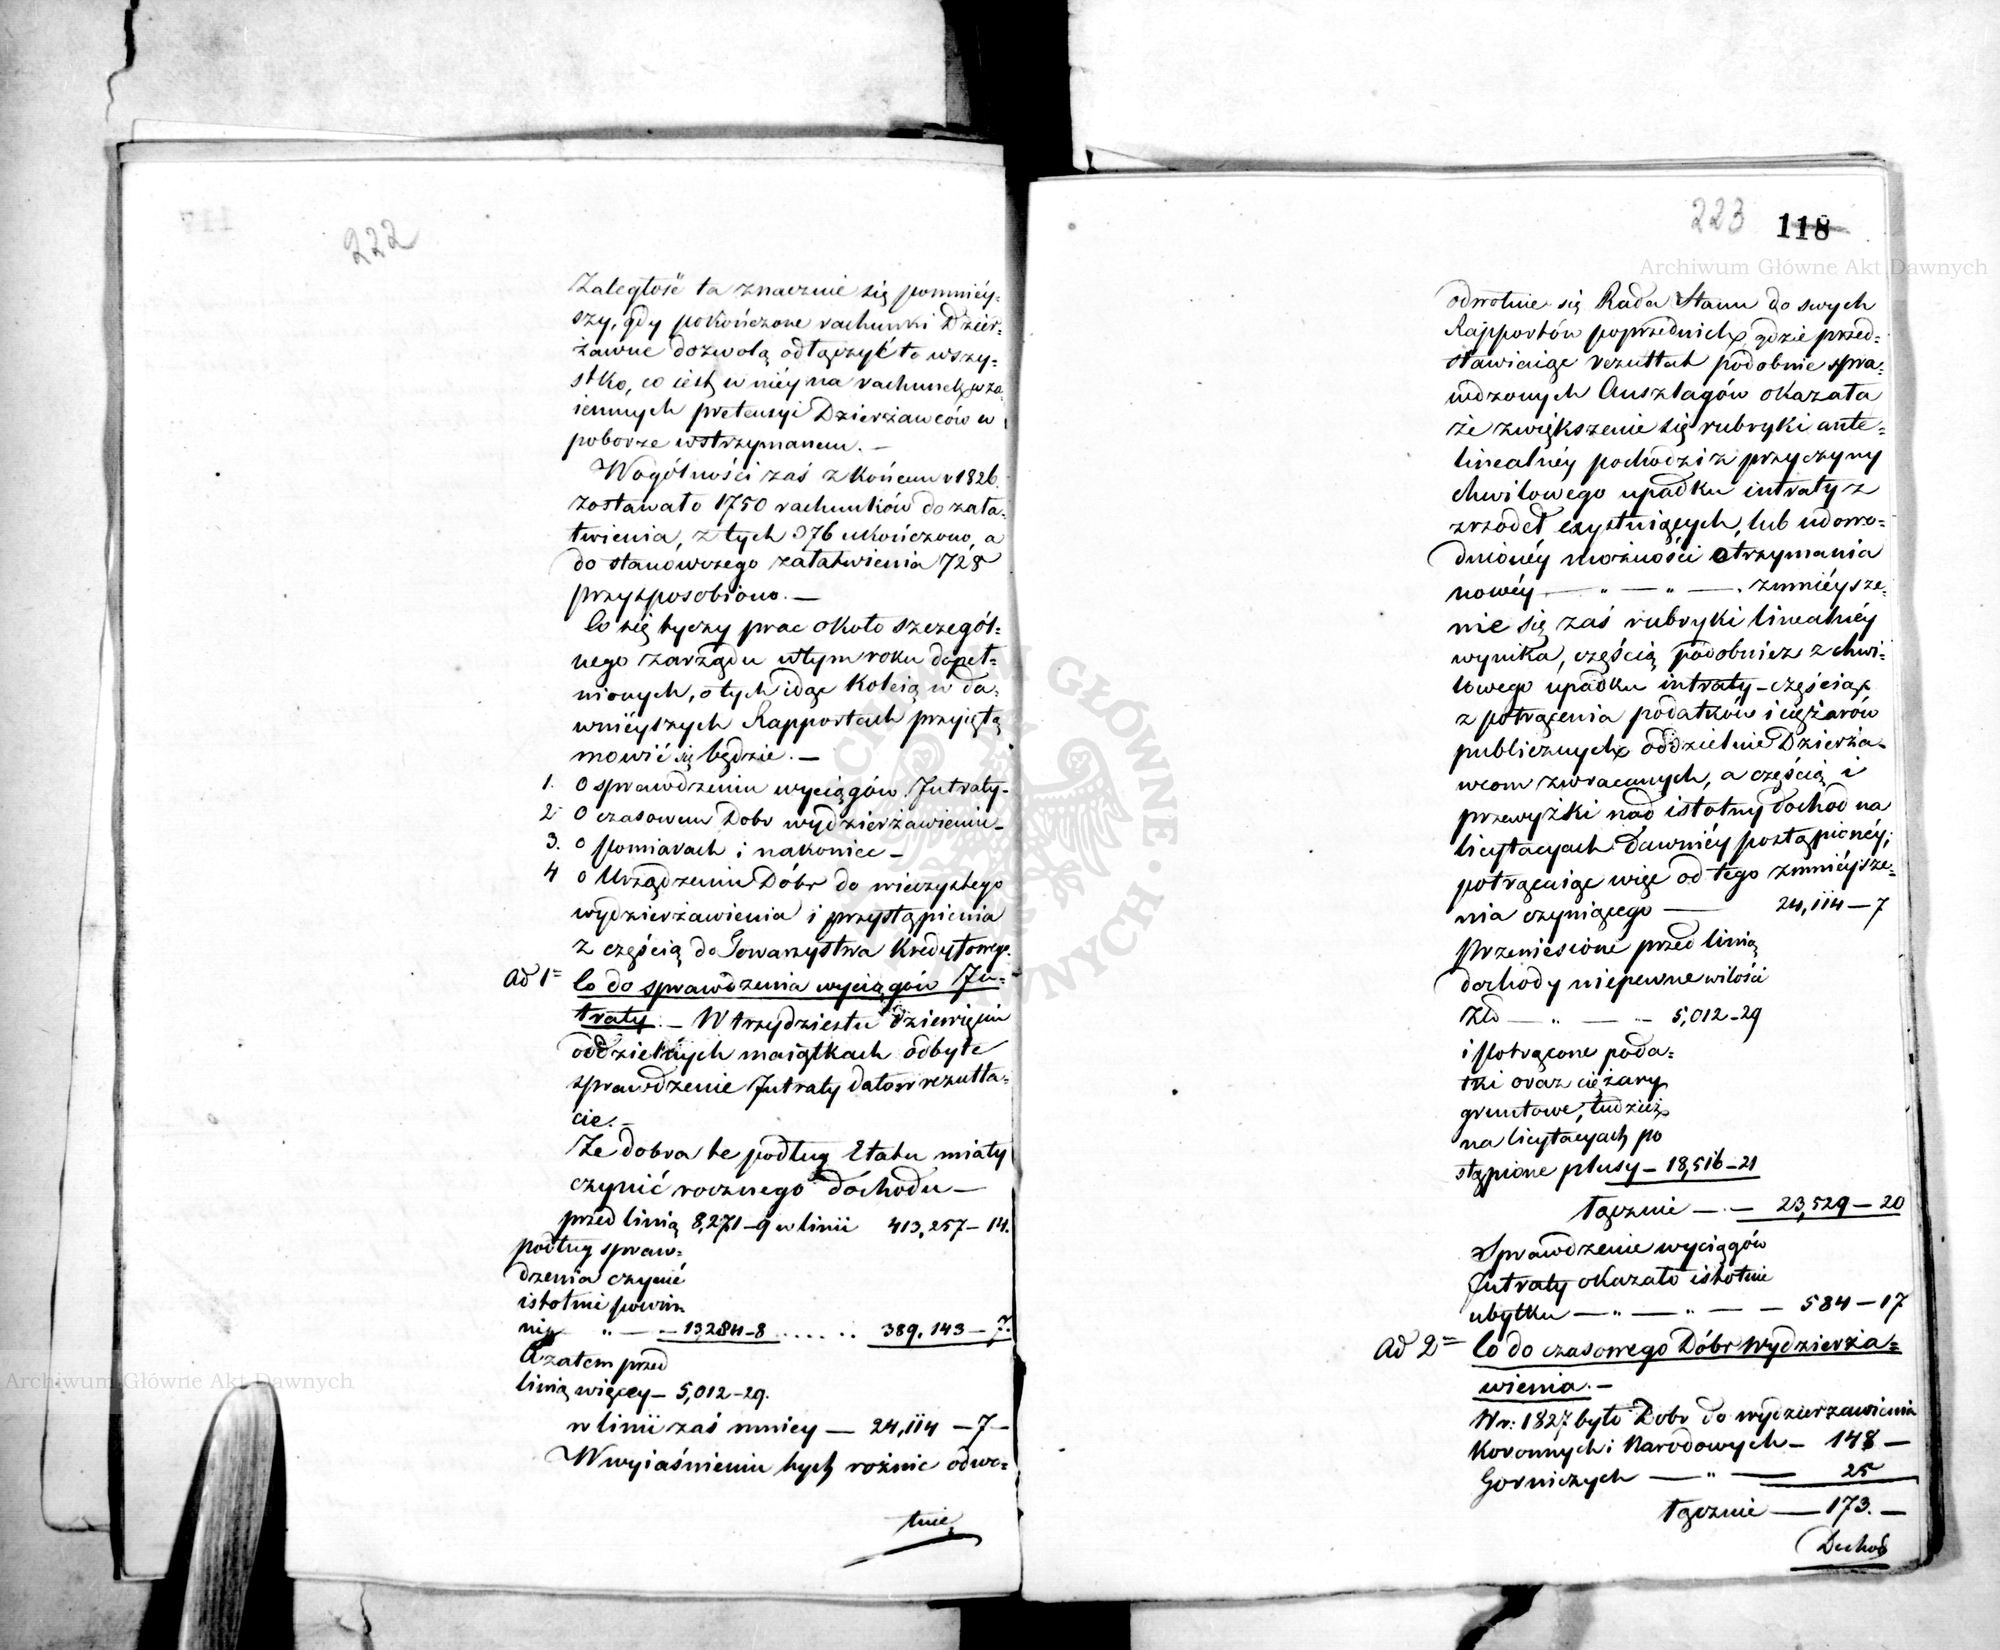 222
Zaległość ta znacznie się pomniéy=
szy, gdy pokończone rachunki Dzier=
żawne dozwolą odłączyć to wszy=
stko, co iest w niéy na rachunek wza
iemnych pretensyi Dzierżawców w
poborze wstrzymanem. —
Wogólności zaś z końcem r 1826.
zostawało 1750 rachunków do zała=
twienia, z tych 376 ukończono, a
do stanowczego załatwienia 728
przysposobiono. —
Co się tyczy prac około szczegól=
nego zarządu w tym roku dopeł=
nionych, o tych idąc koleią w da=
wniéyszych Rapportach przyiętą
mowić się będzie. —
1. O sprawdzeniu wyciągów Intraty-
2. O czasowem Dobr wydzierżawieniu-
3. o pomiarach i nakoniec —
4 o Urządzeniu Dóbr do wieczystego
wydzierżawienia i przystąpienia
z częścią do Towarzystwa Kredytowego.
Ad 1= Co do sprawdzenia wyciągów In=
traty. — W trzydziestu dziewięciu
oddzielnych maiątkach odbyte
sprawdzenie Intraty dało w rezulta=
cie. —
Że dobra te podług Etatu miały
czynić rocznego dochodu —
przed linią 8,271-9 w linii 413,257-14.
podług spraw=
dzenia czynić
istotnie powin
ny „ — 13284-8 ...... 389,143-7.
A zatem przed
linią więcey — 5,012-29.
w linii zaś mniey — 24,114-7-
W wyiaśnieniu tych rożnic odwo=
tnie
223 118
odwotnie się Rada Stanu do swych
Rapportów poprzednich, gdzie przed=
stawiaiąc rezultat podobnie spra=
wdzonych Anszlagów okazała
że zwiększenie się rubryki ante=
linealnéy pochodzi z przyczyny
chwilowego upadku intraty z
zrzódeł exystuiących, lub udowo=
dnionéy możności otrzymania
nowéy — „ — „ — . zmniéysze=
nie się zaś rubryki linealnéy
wynika, częścią podobnież z chwi=
lowego upadku intraty — częścią
z potrącenia podatków i ciężarów
publicznych oddzielnie Dzierża=
wcom zwracanych, a częścią i
przewyżki nad istotny dochod na
licytacyach dawniéy postąpionéy;
potrącaiąc więc od tego zmniéysze=
nia czyniącego — 24,114-7
przeniesione przed linią
dochody niepewne w ilości
Złł — „ — „ 5,012-29
i potrącone poda=
tki oraz ciężary
gruntowe, tudzież
na licytacyach po
stąpione plusy — 18,516-21
łącznie — — 23,529-20
Sprawdzenie wyciągów
Intraty okazało istotnie
ubytku — „ — „ — — 584-17
Ad 2= Co do czasowego Dóbr wydzierża=
wienia. —
W r: 1827 było Dobr do wydzierżawienia
Koronnych i Narodowych — 148 —
Gorniczych — „ — 25
łącznie — 173. —
Dochod
Archiwum Główne Akt Dawnych
Archiwum Główne Akt Dawnych